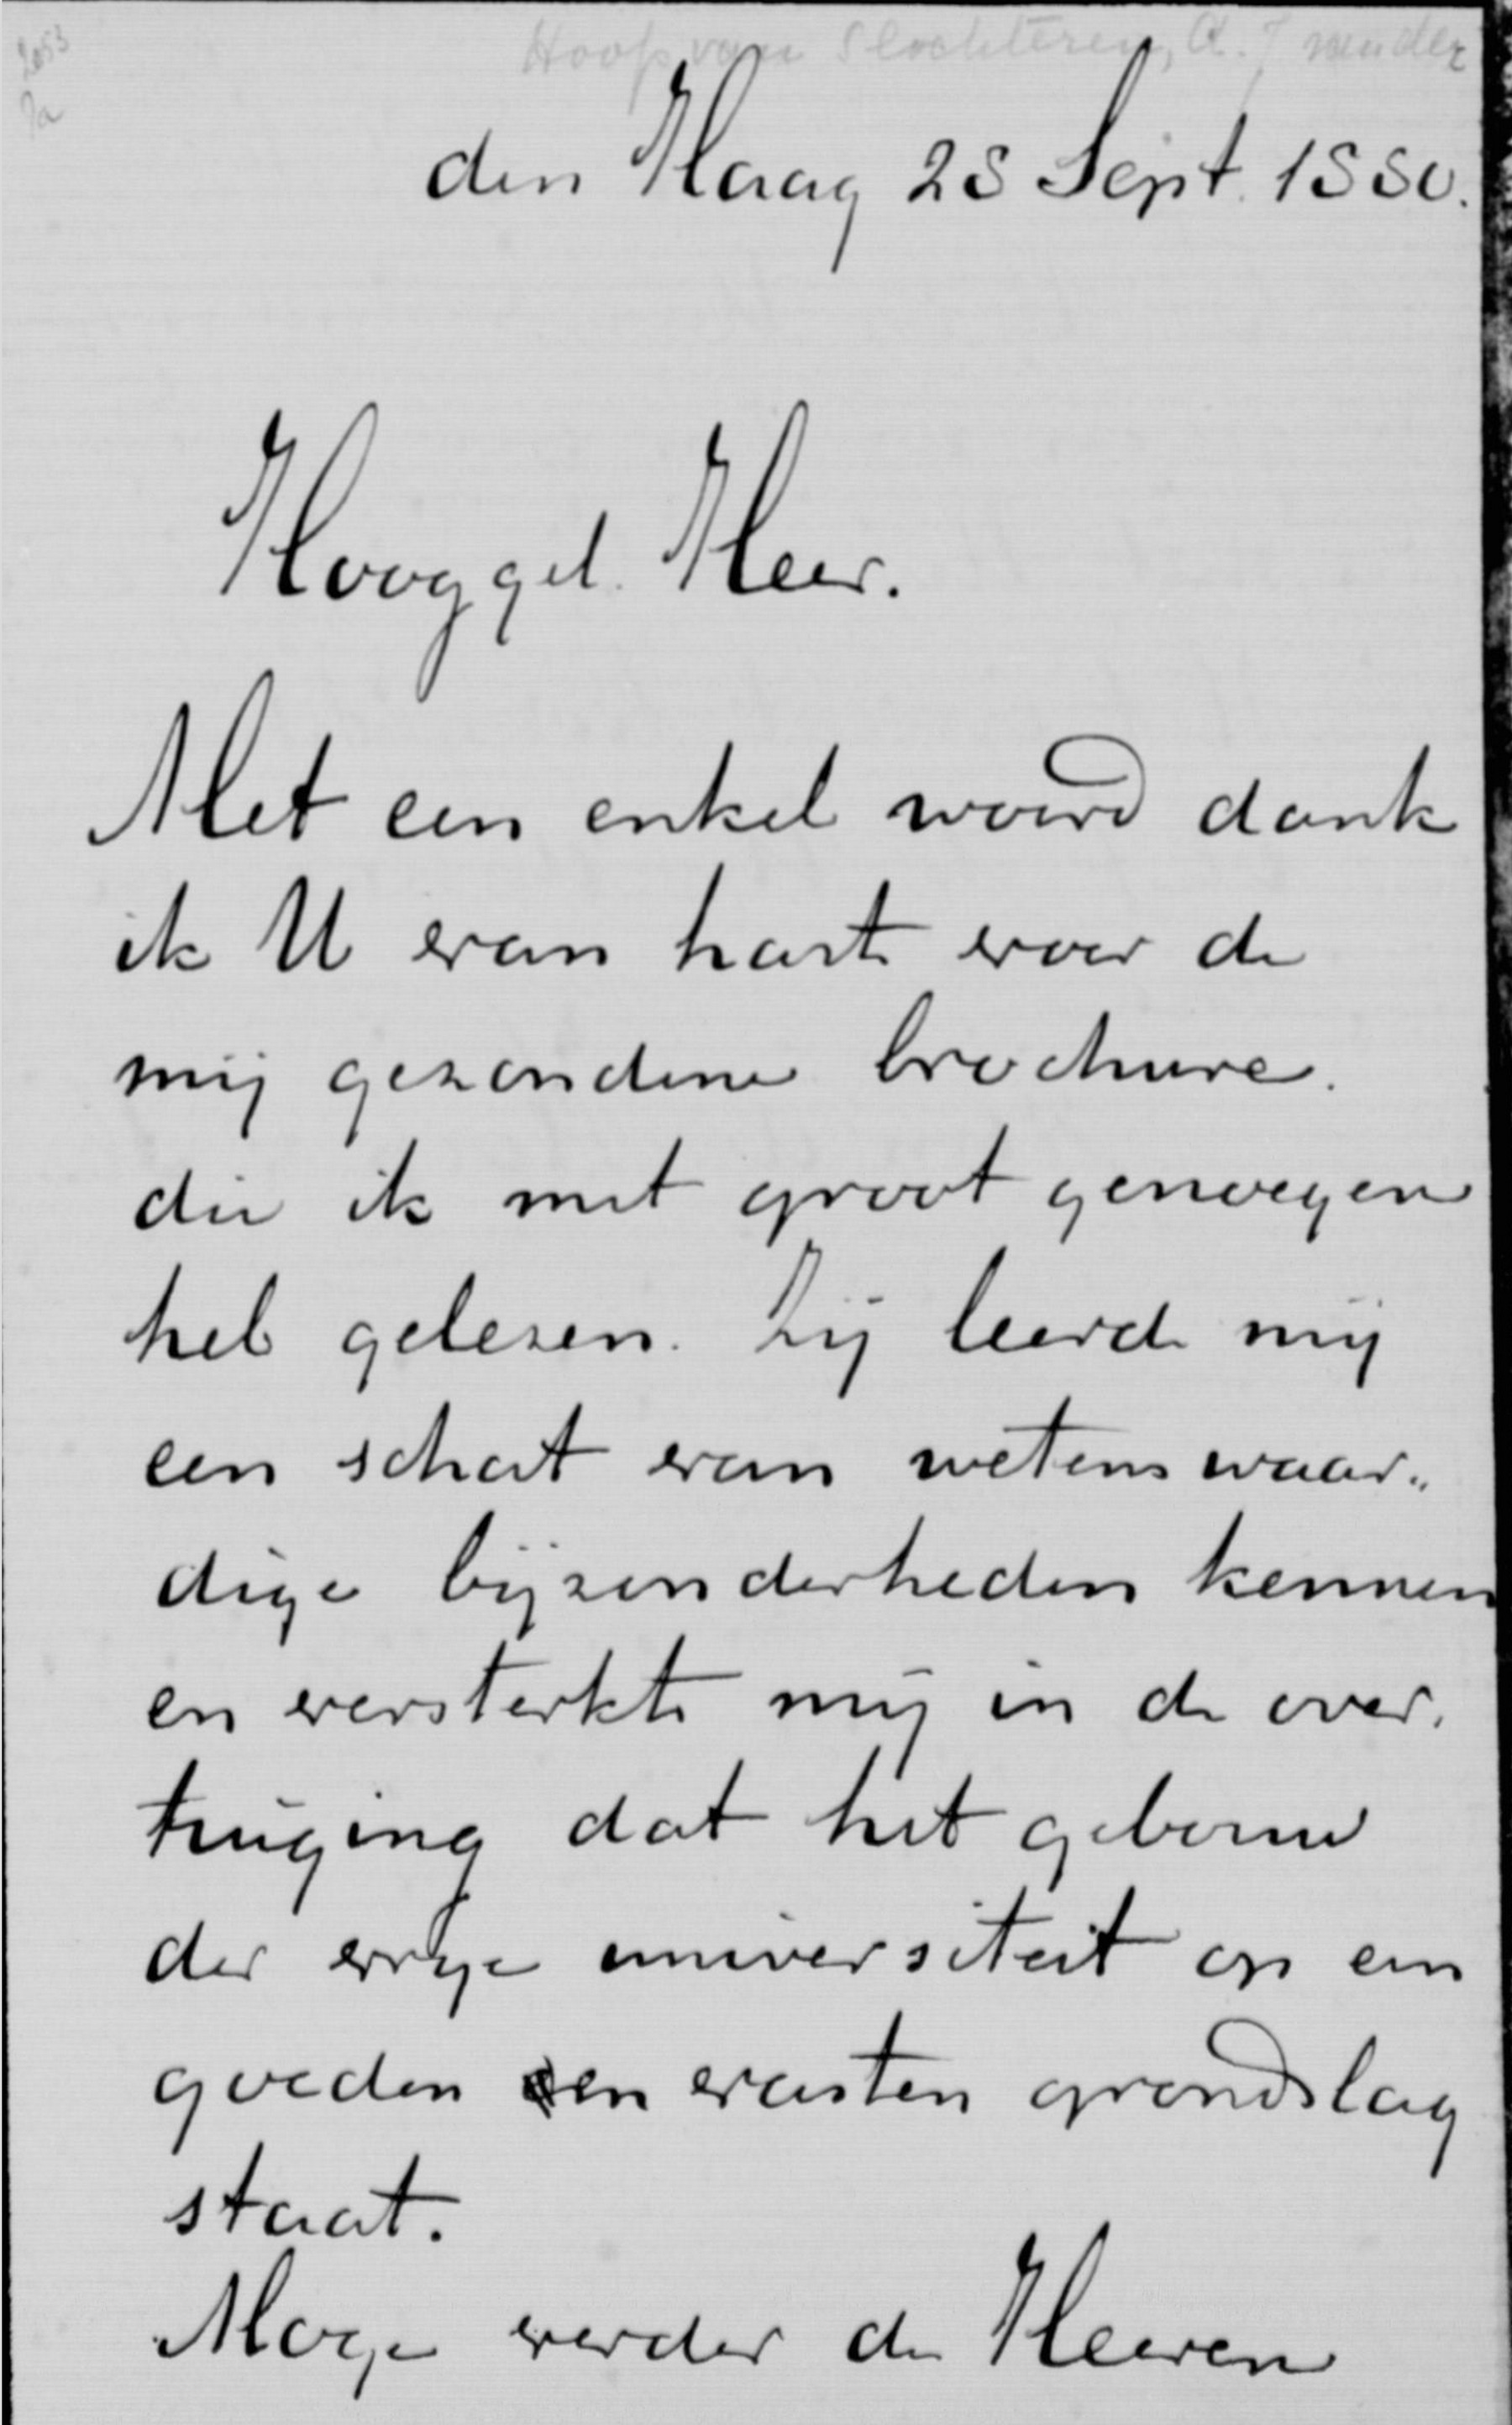 2053
7a
Hoop van Slochteren, A. J van der
den Haag 28 Sept. 1880.
Hooggel. Heer.
Met een enkel woord dank
ik U van harte voor de
mij gezondene brochure.
die ik met groot genoegen
heb gelezen. Zij leerde mij
een schat van wetenswaar„
dige bijzonderheden kennen
en versterkte mij in de over.
tuiging dat het gebouw
der vrije universiteit op een
goeden en vasten grondslag
staat.
Moge verder de Heeren